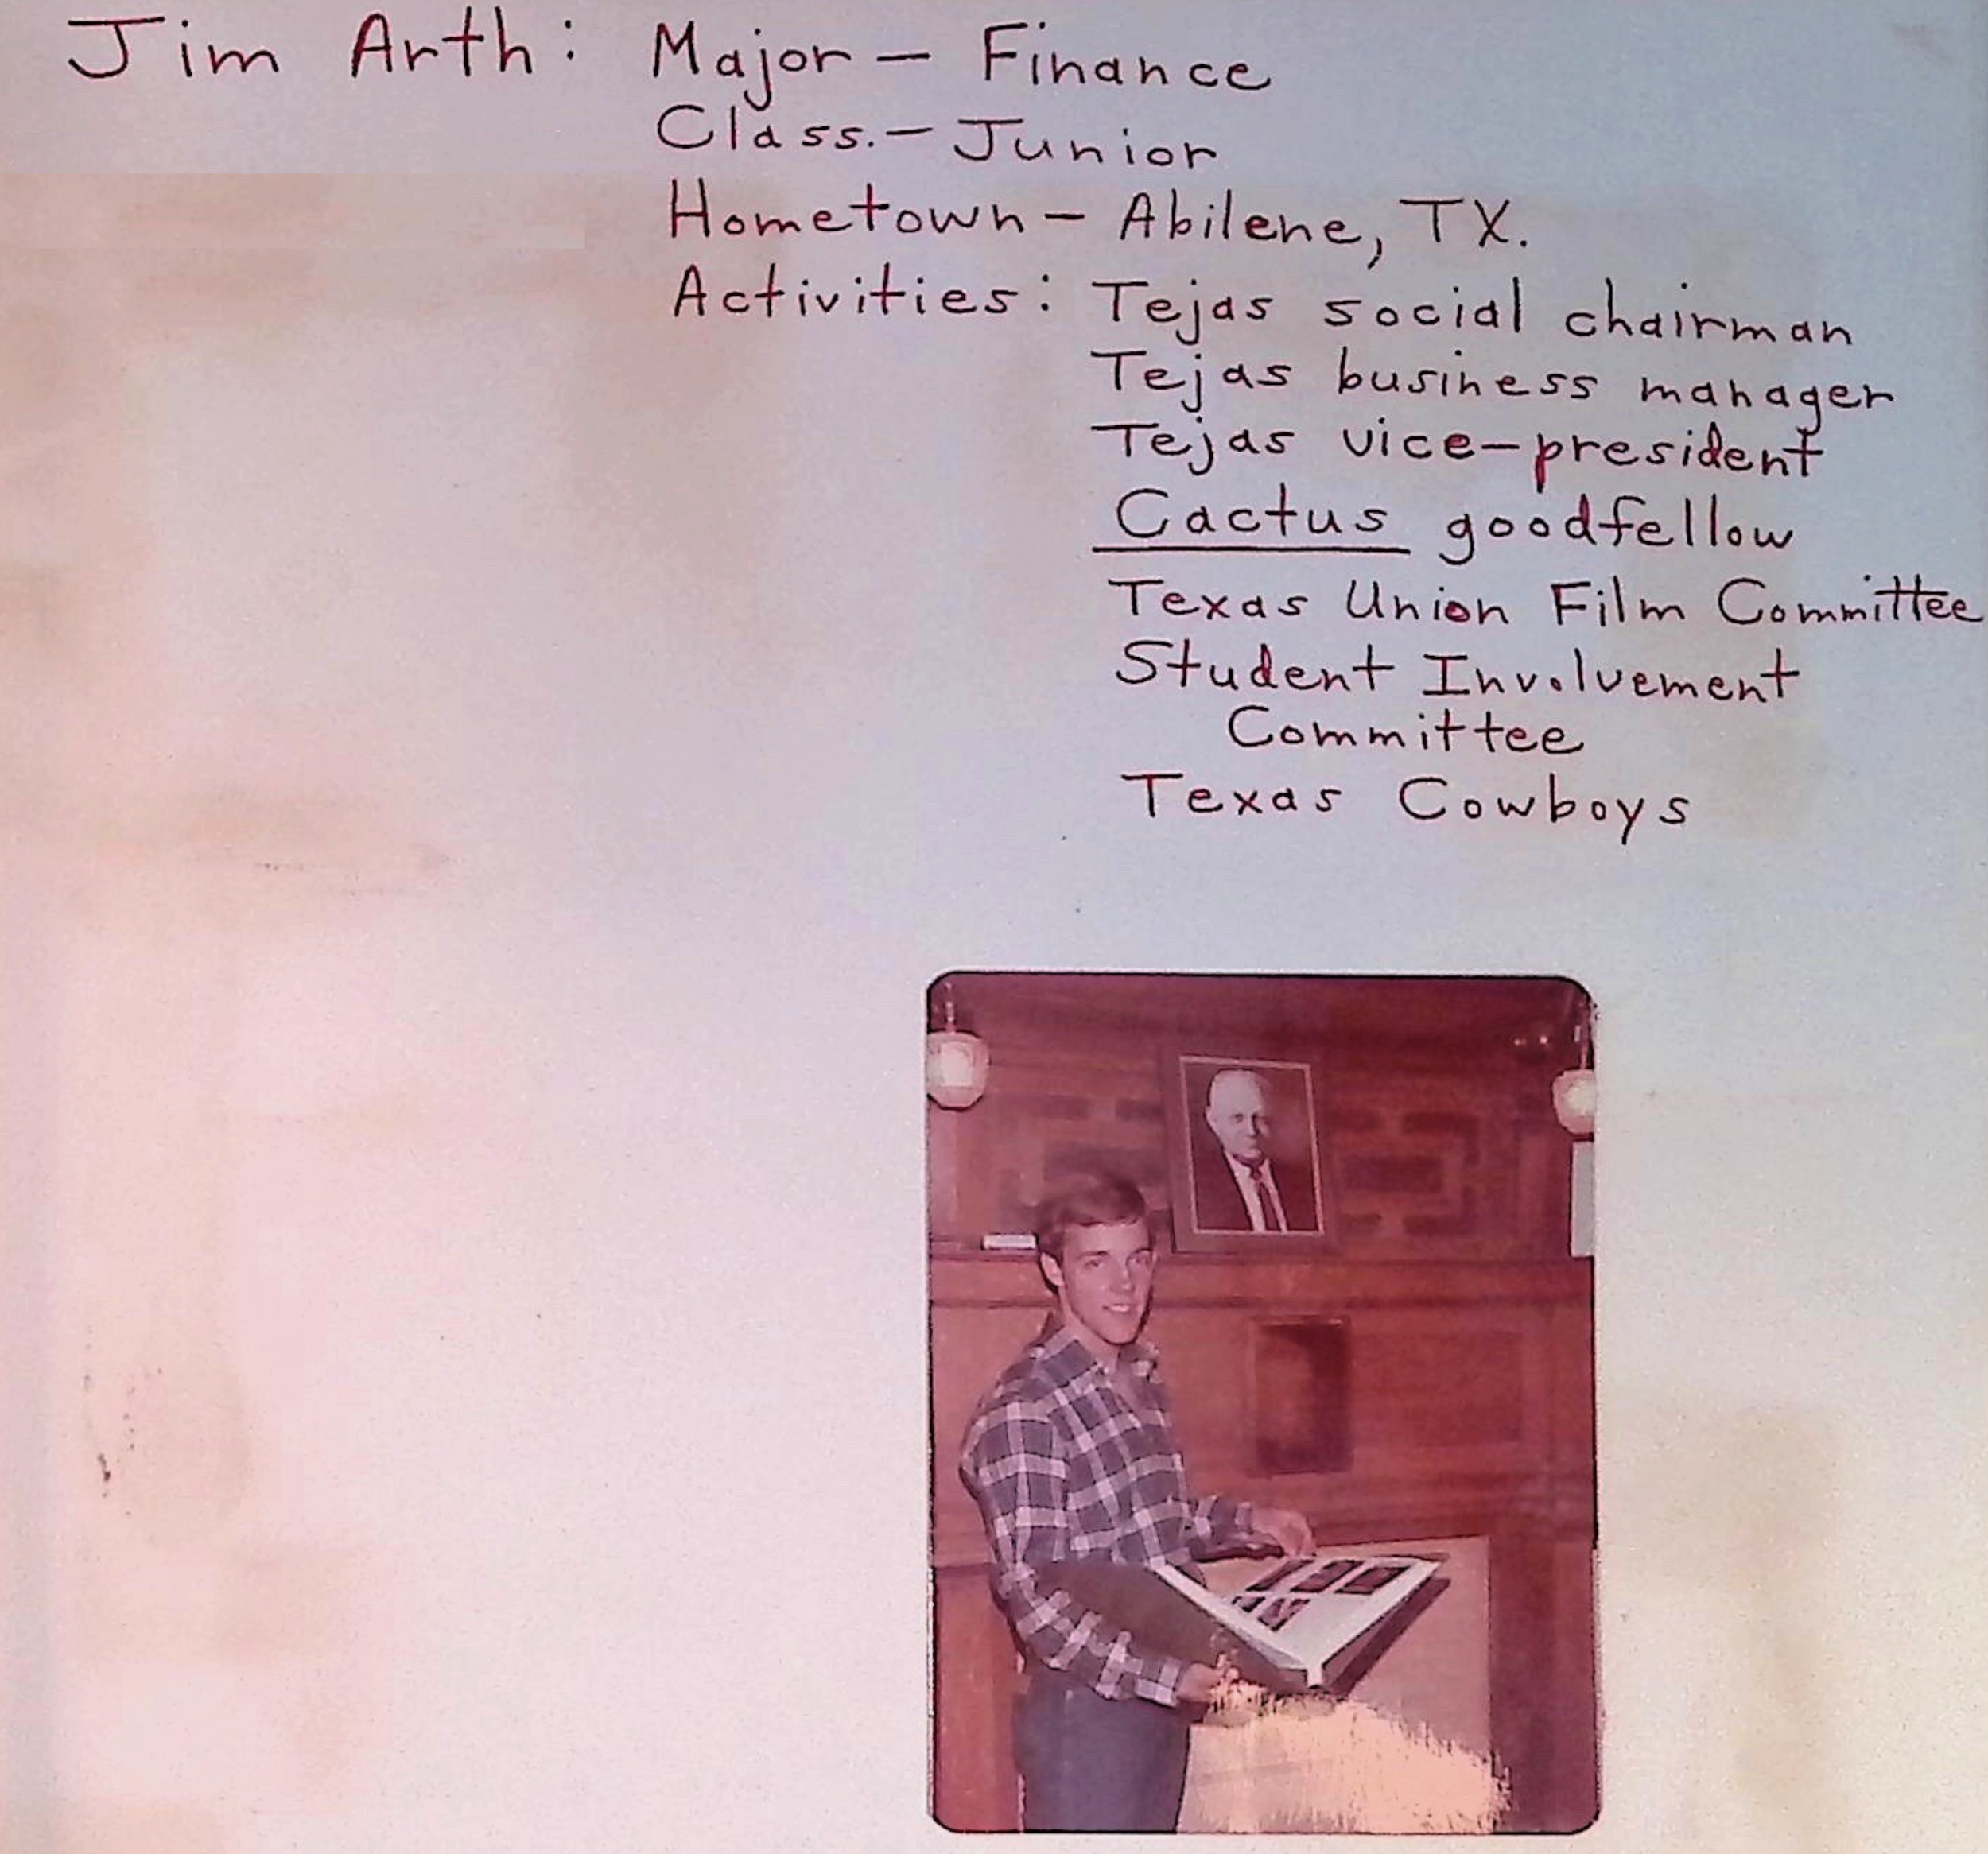 Jim Arth: Major - Finance
Class. - Junior
Hometown - Abilene, TX.
Activities: Tejas social chairman
Tejas business manager
Tejas vice-president
Cactus goodfellow
Texas Union Film Committee
Student Involvement
Committee
Texas Cowboys